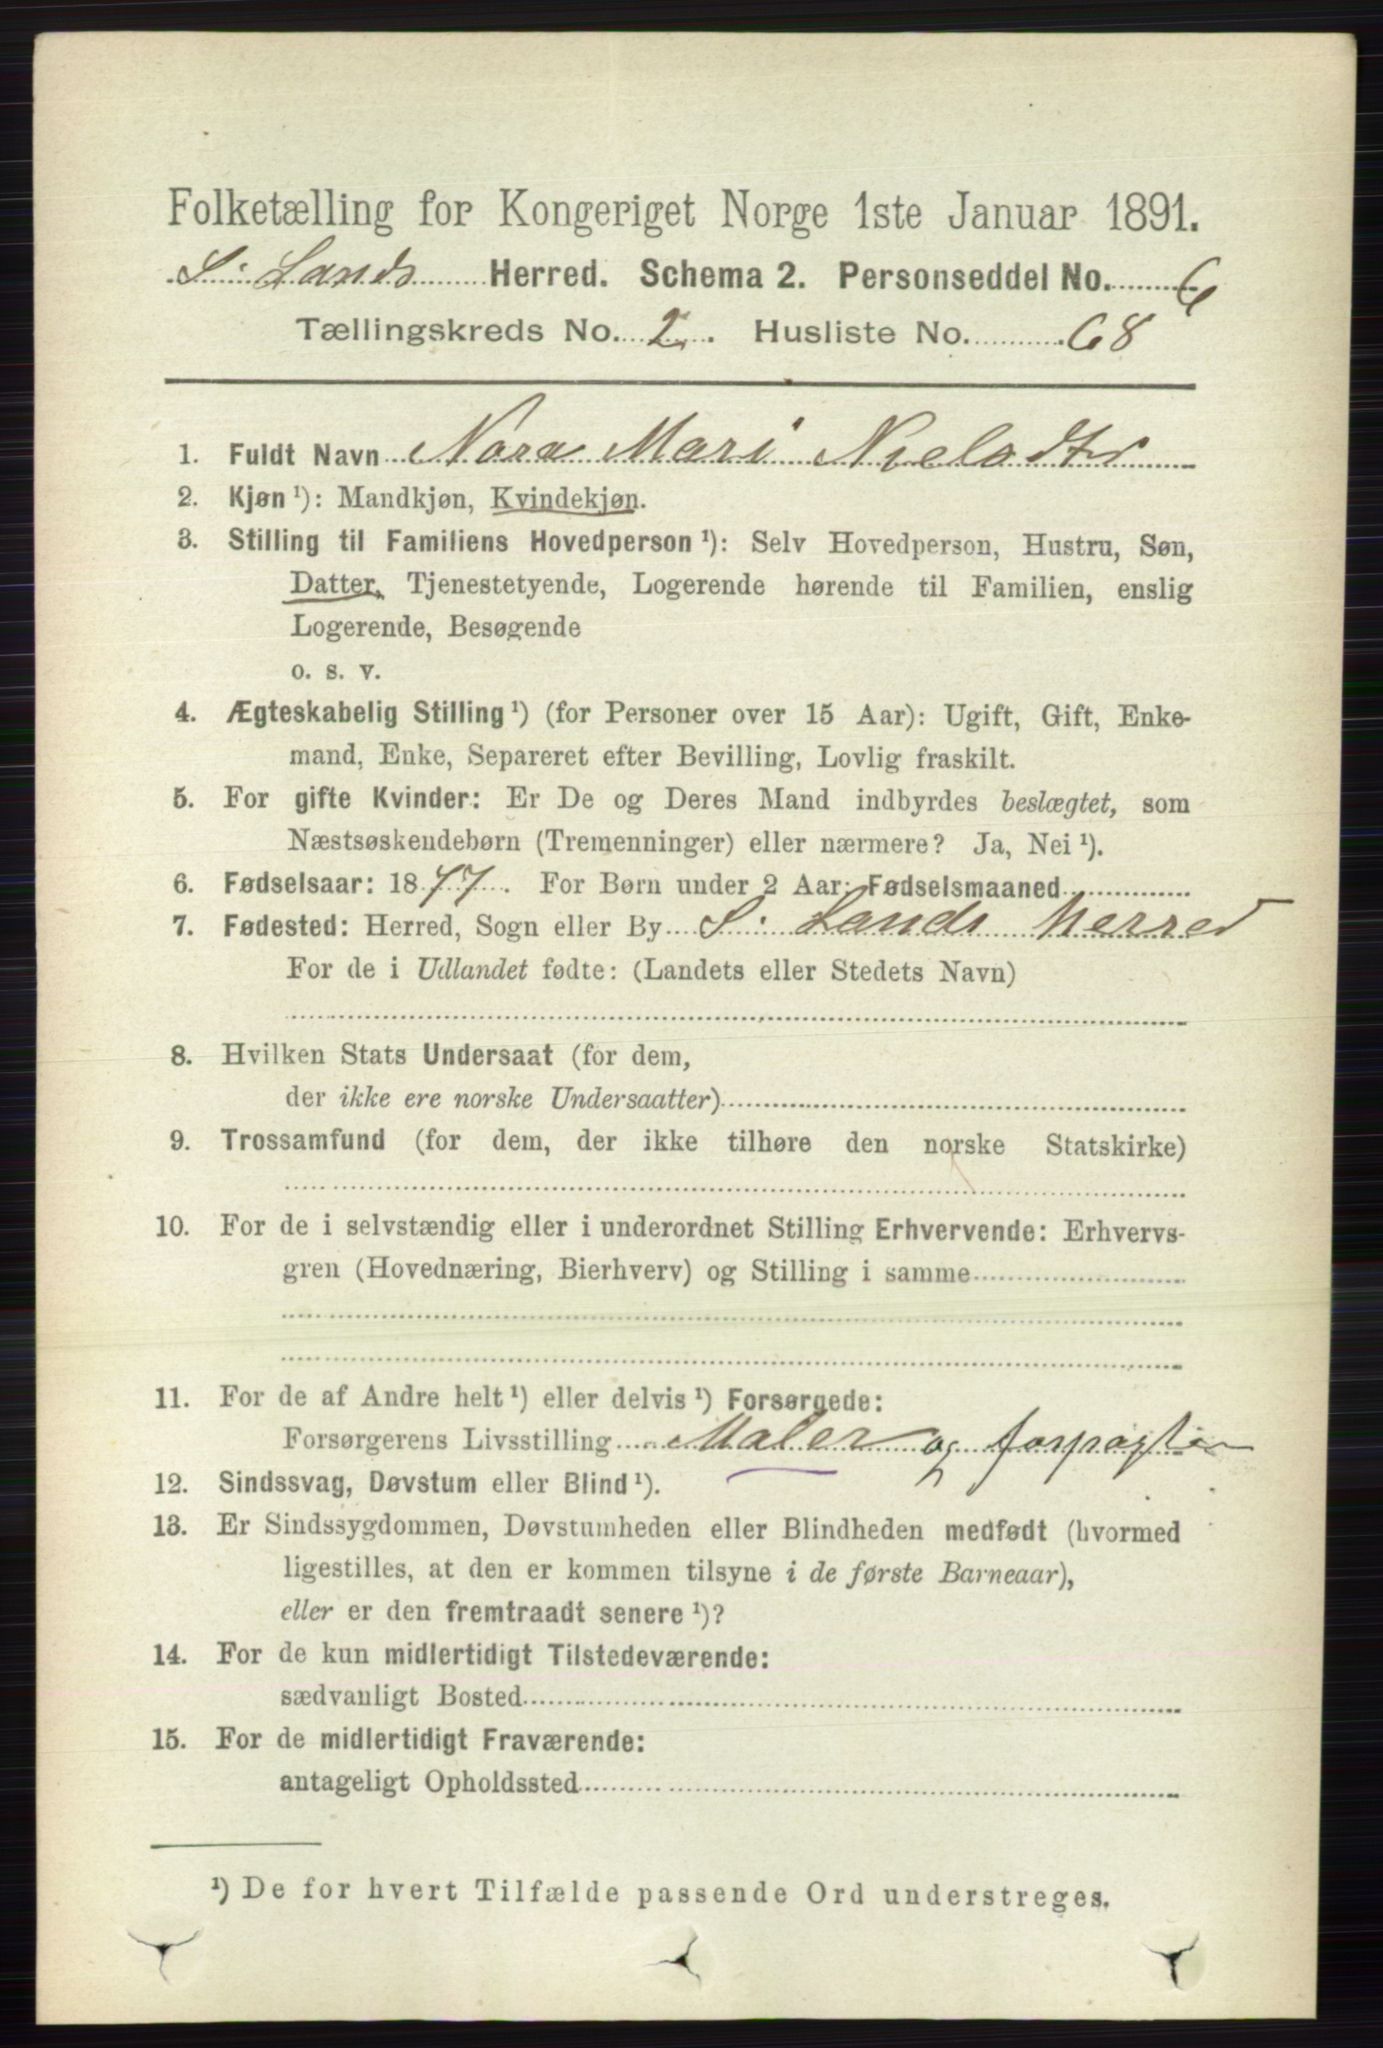 Folketælling for Kongeriget Norge 1ste Januar 1891.
S. Lands Herred. Schema 2. Personseddel No. 6
Tællingskreds No. 2. Husliste No. 68
1. Fuldt Navn Nora Mari Nielsdtr
2. Kjøn ¹): Mandkjøn, Kvindekjøn.
3. Stilling til Familiens Hovedperson ¹): Selv Hovedperson, Hustru, Søn,
Datter, Tjenestetyende, Logerende hørende til Familien, enslig
Logerende, Besøgende
o. s. v.
4. Ægteskabelig Stilling ¹) (for Personer over 15 Aar): Ugift, Gift, Enke-
mand, Enke, Separeret efter Bevilling, Lovlig fraskilt.
5. For gifte Kvinder: Er De og Deres Mand indbyrdes beslægtet, som
Næstsøskendebørn (Tremenninger) eller nærmere? Ja, Nei ¹).
6. Fødselsaar: 1877. For Børn under 2 Aar: Fødselsmaaned
7. Fødested: Herred, Sogn eller By S. Lands Herred
For de i Udlandet fødte: (Landets eller Stedets Navn)
8. Hvilken Stats Undersaat (for dem,
der ikke ere norske Undersaatter)
9. Trossamfund (for dem, der ikke tilhøre den norske Statskirke)
10. For de i selvstændig eller i underordnet Stilling Erhvervende: Erhvervs-
gren (Hovednæring, Bierhverv) og Stilling i samme
11. For de af Andre helt ¹) eller delvis ¹) Forsørgede:
Forsørgerens Livsstilling Maler og forpagter
12. Sindssvag, Døvstum eller Blind ¹).
13. Er Sindssygdommen, Døvstumheden eller Blindheden medfødt (hvormed
ligestilles, at den er kommen tilsyne i de første Barneaar),
eller er den fremtraadt senere ¹)?
14. For de kun midlertidigt Tilstedeværende:
sædvanligt Bosted
15. For de midlertidigt Fraværende:
antageligt Opholdssted
¹) De for hvert Tilfælde passende Ord understreges.